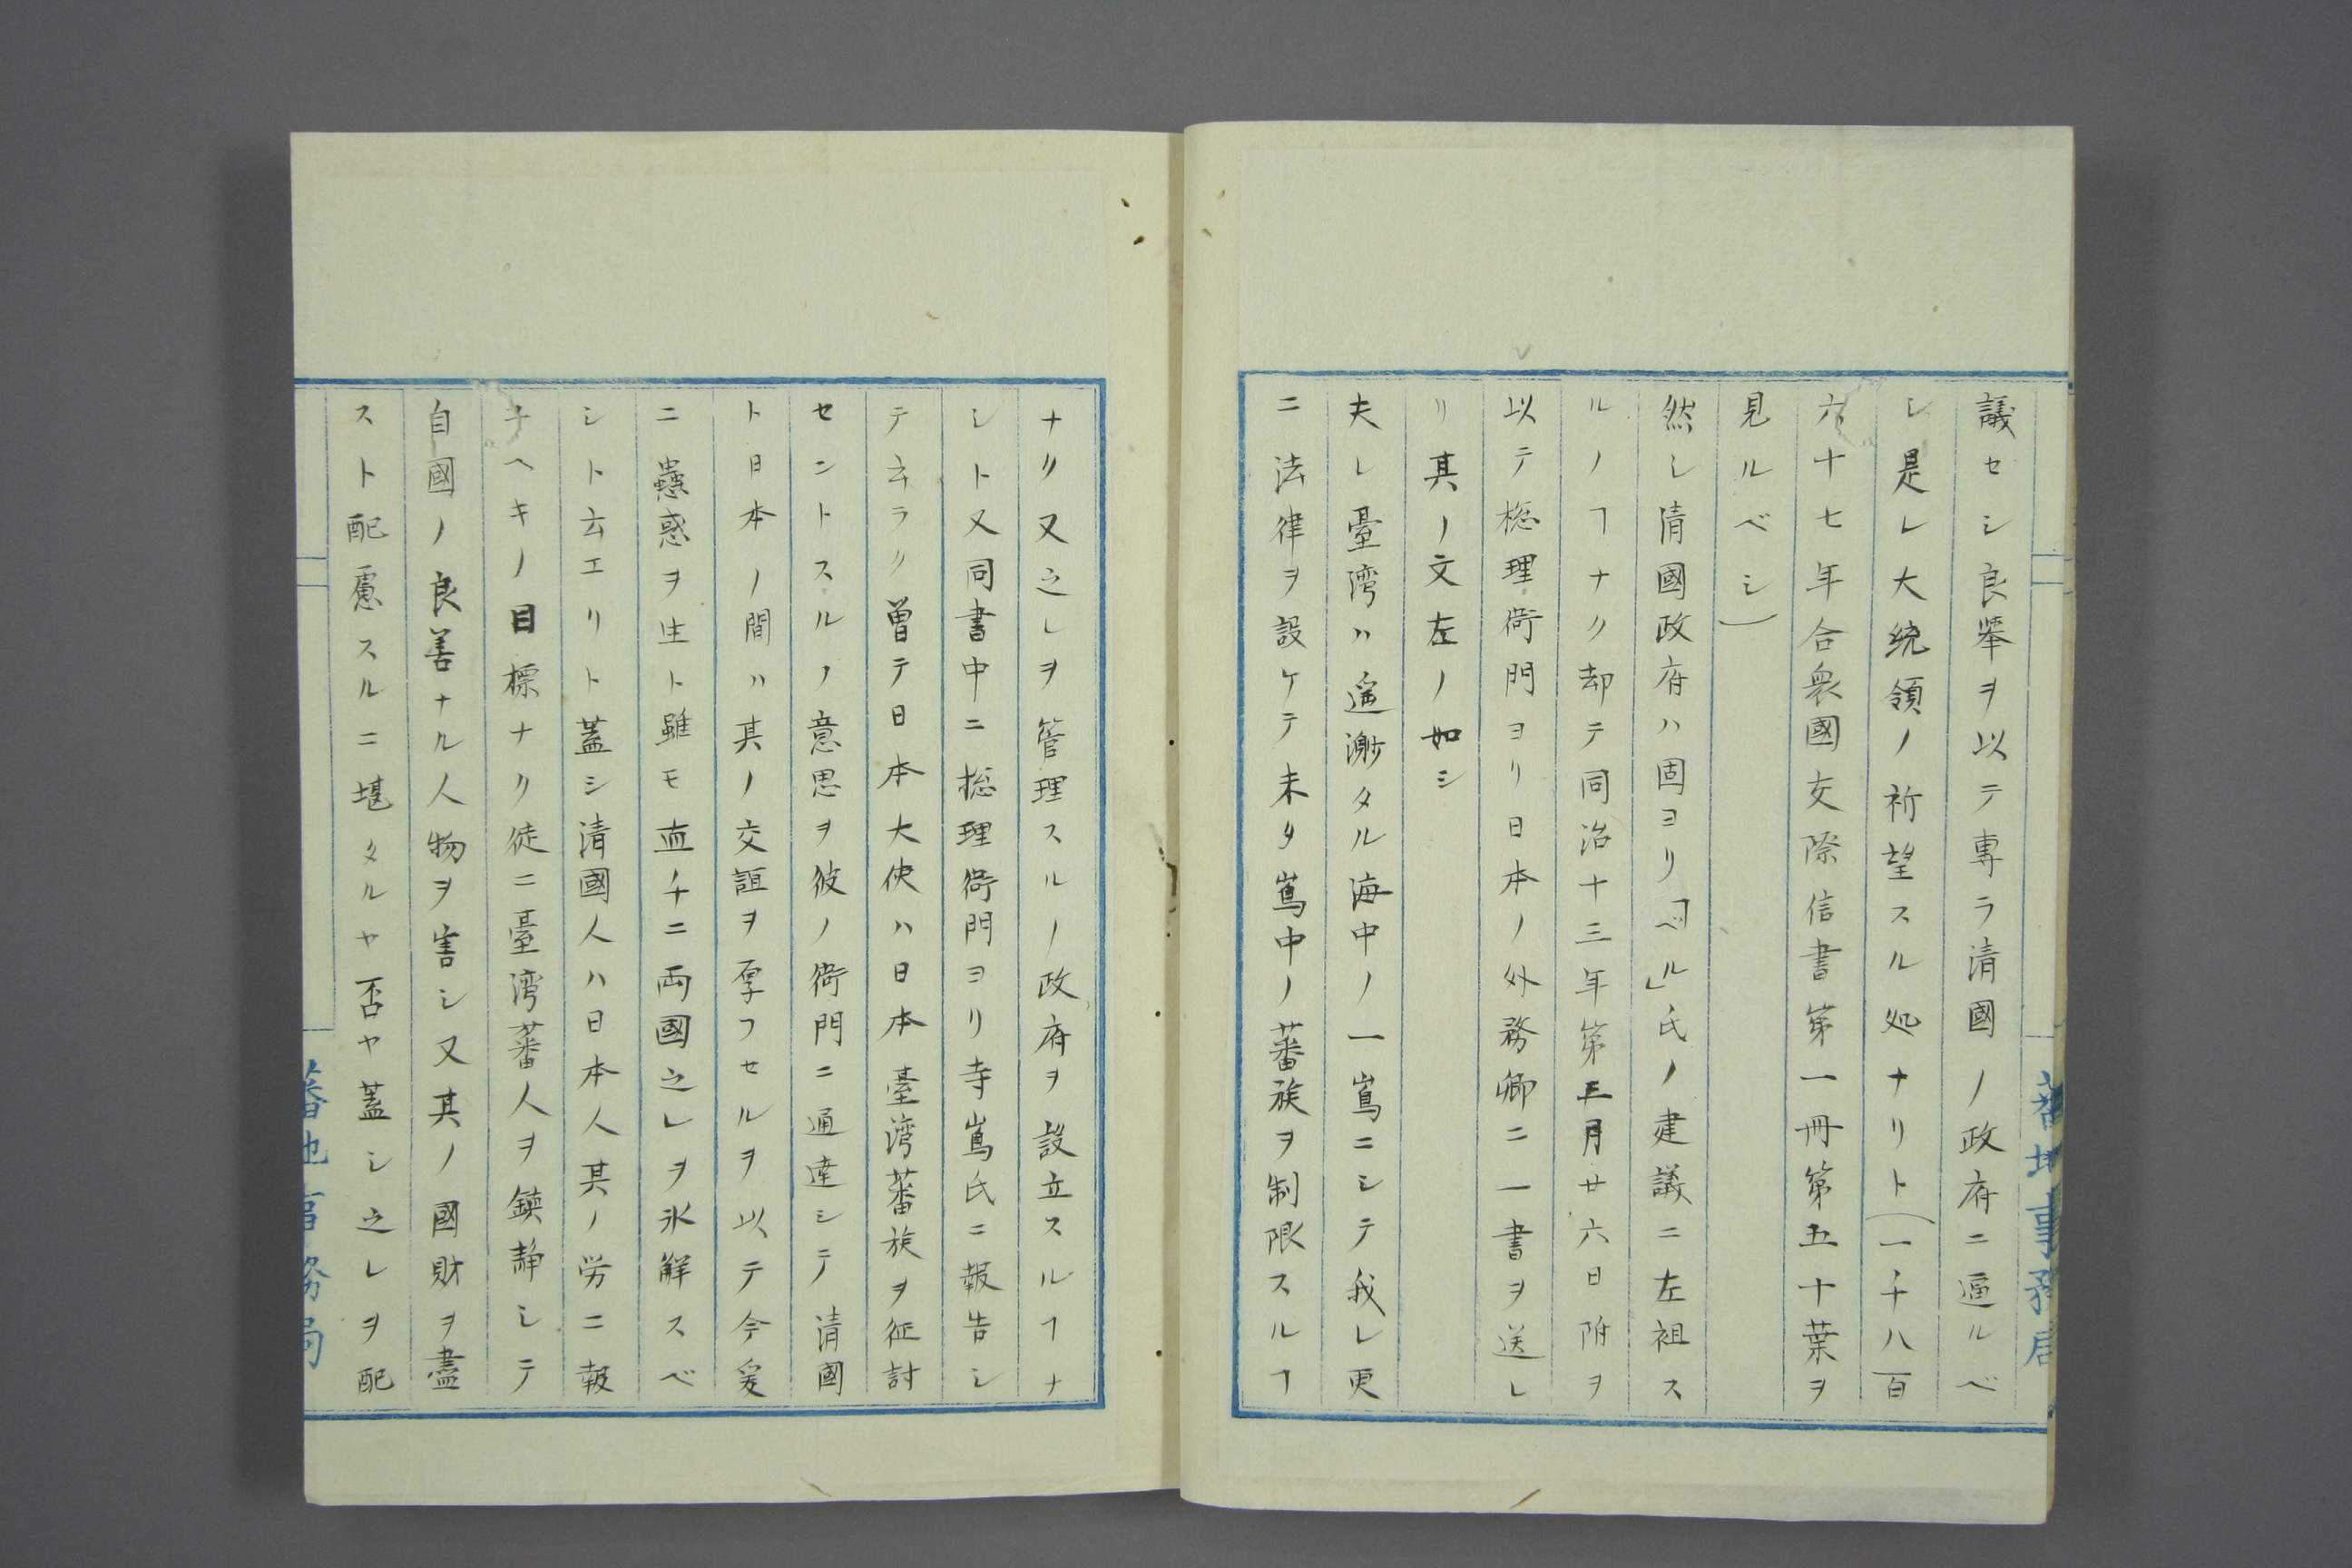 議セシ良挙ヲ以テ専ラ清國ノ政府ニ逼ルベ
シ是レ大統領ノ祈望スル処ナリト(一千八百
六十七年合衆國交際信書第一冊第五十葉ヲ
見ルベシ)
然シ清國政府ハ固ヨリ「ベル」氏ノ建議ニ左袒ス
ルノヿナク却テ同治十三年第三月廿六日附ヲ
以テ総理衙門ヨリ日本ノ外務卿ニ一書ヲ送レ
リ其ノ文左ノ如シ
夫レ臺湾ハ遥渺タル海中ノ一嶌ニシテ我レ更
ニ法律ヲ設ケテ未タ嶌中ノ蕃族ヲ制限スルヿ
蕃地事務局
ナク又之レヲ管理スルノ政府ヲ設立スルヿナ
シト又同書中ニ総理衙門ヨリ寺嶌氏ニ報告シ
テ云ラク曽テ日本大使ハ日本臺湾蕃族ヲ征討
セントスルノ意思ヲ彼ノ衙門ニ通達シテ清國
ト日本ノ間ハ其ノ交誼ヲ厚フセルヲ以テ今爰
ニ惑ヲ生ト雖モ直チニ両國之レヲ氷解スベ
シト云エリト蓋シ清國人ハ日本人其ノ労ニ報
ヘキノ目標ナク徒ニ臺湾蕃人ヲ鎮静シテ
自國ノ良善ナル人物ヲ害シ又其ノ國財ヲ盡
スト配慮スルニ堪タルヤ否ヤ蓋シ之レヲ配
蕃地事務局